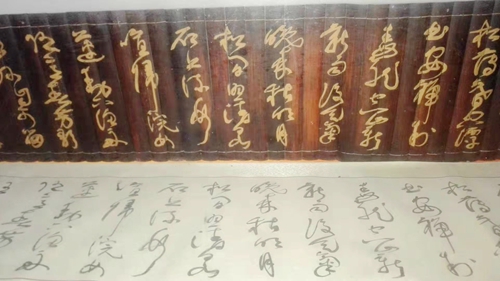 松薄暮空潭
曲安禪制
毒龍空山
新雨後天氣
晚來秋明月
松間照清泉
石上流竹
喧歸浣女
蓮動下漁舟
隨意春芳歇
松薄暮
曲安禪制
毒龍空山
新雨後天氣
晚來秋明月
松間照清泉
石上流竹
喧歸浣女
蓮動下漁舟
隨意春芳